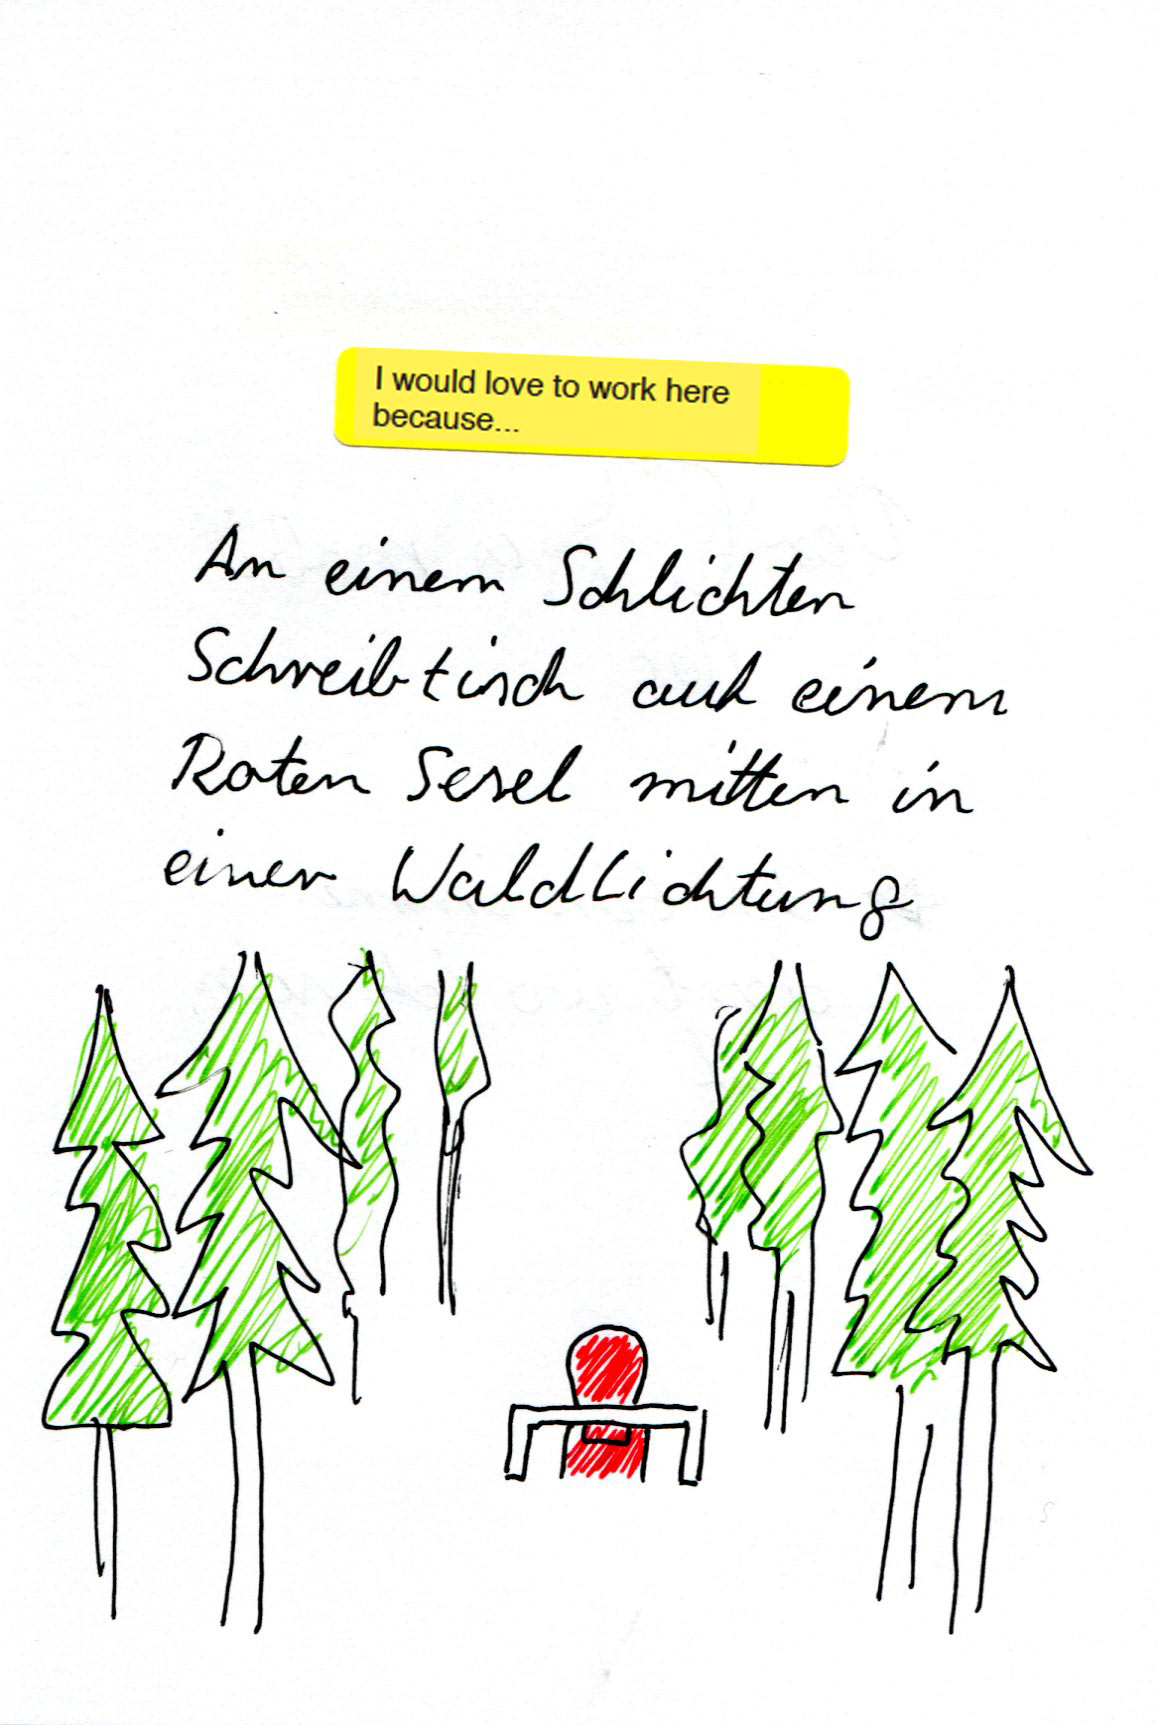 I would love to work here
because...
An einem Schlichten
Schreibtisch auf einem
Roten Sesel mitten in
einer Waldlichtung